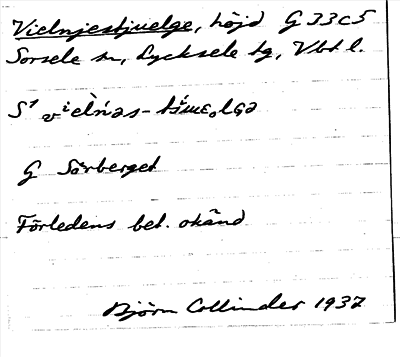 Vielnjestjuelge, höjd G 33c5
Sorsele sn, Lycksele tg, Vbt l.
G Sörberget
Förledens bet. okänd
Björn Collinder 1937